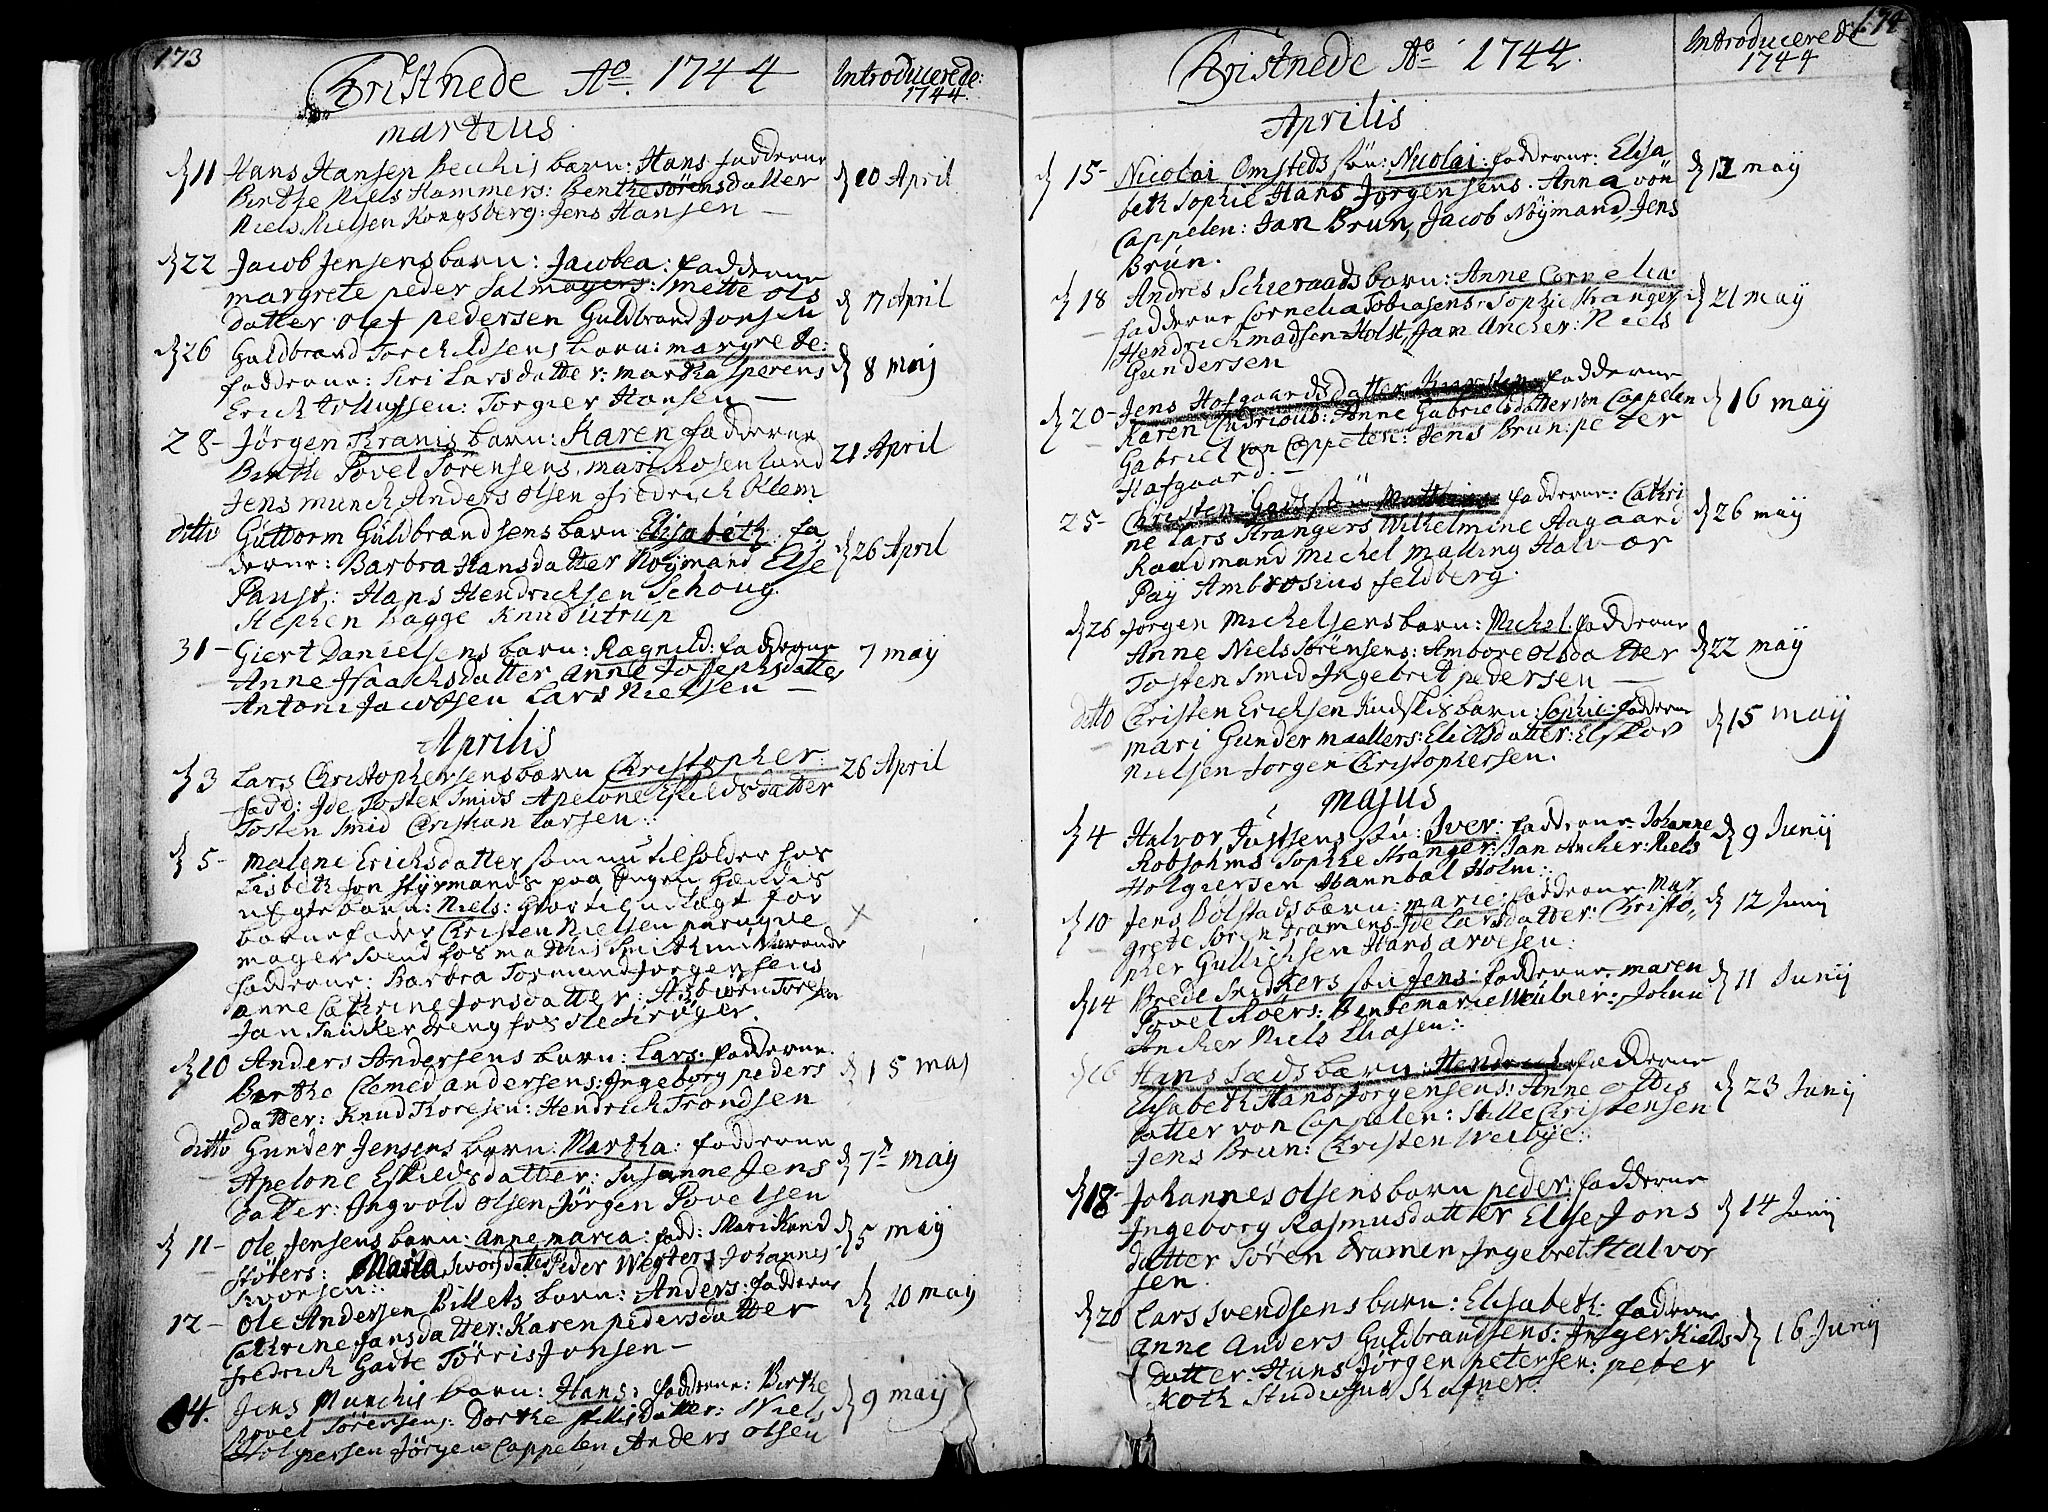 173
Cristnede Ao. 1744
Introducerede:
1744.
martius
d 11 Hans Hansen Becchis barn: Hans: fadderne d 10 April
Birthe Niels Hammers: Benthe Sörensdatter
Niels Nielsen Kongsberg: Jens Hansen —
d 22 Jacob Jensens barn: Jacobea: fadderne
margrete peder Salmagers: Mette Ols d 17 April
datter Olef pedersen Guldbrand Jonsen
d 26 Guldbrand Torchildsens barn: margrete:
fadderne: Siri Larsdatter: martha Iperens d 8 maj
Erich Torgier Hansen —
28 - Jörgen Kranis barn: Karen fadderne 21 April
Birthe Povel Sörensens, mari Rosenlund
Jens munch Anders olsen fredrich Klem
ditto Guttorm Guldbrandsens barn Elisabeth: fa d 26 April
derne: Barbra Hansdatter Nöymand Else
Paust: Hans Hendrichsen Schoug.
Stephen Bagge Knud utrup
31 - Giert Danielsens barn: Ragnild: fadderne 7 may
Anne Isaachsdatter Anne Josephsdatter
Antoni Jacobsen Lars Nielsen —
Aprilis
d 3 Lars Christophersens barn Christopher: 26 April
fadd: Ide Tosten Smids Apelone Eskildsdatter
Tosten Smid Christian Larsen:
d 5 - Malene Erichsdatter som nu tilholder hos
Lisbeth Jon Styrmands paa Engen hendis
uEgte barn: Niels: hvortil udlagt for
barnefader Christen Nielsen peruque
mager svend hos mathis Smith nu værende
fadderne: Barbra Tormund Jorgensens
anne Cathrine Jonsdatter: Asbiörn Toresen
Jan Snicker dreng hos Ole Kröger.
d 10 Anders Andersens barn: Lars: fadderne. d 15 maj
Berthe Clemed andersens: Ingeborg peders
datter: Knud Thoresen: Hendrich Trondsen
ditto Gunder Jensens barn: Martha: fadderne d 7 may
Apelone Eskildsdatter: Susanne Jens
datter: Ingvold Olsen Jörgen Povelsen
d 11 - Ole Jensens barn: anne maria: fadd: Mari Knud d 5 may
Stöters: Maria Iworsdatter Peder Wegters Johannes
Iworsen:
12 - Ole Andersen Billets barn: Anders: fadderne d 20 may
Cathrine Jansdatter: Karen pedersdatter
fredrich Gade Törris Jonsen —
14. Jens Munchis barn: Hans: fadderne: Birthe d 9 maij
Povel Sörensens: Dorthe Nielsdatter: Niels
Holgersen Jörgen Cappelen Anders olsen
174
Cristnede Ao 1744.
Introducerede
1744
Aprilis
d 15 - Nicolai Omsteds sön: Nicolai: fadderne: Elisa d 12 may
beth Sophie Hans Jörgensens. Anna von
Cappelen: Jan Brun, Jacob Nöymand, Jens
Brun.
d 18 Andres Schieraads barn: Anne Cornelia: d 21 may
fadderne Cornelia Tobiasens: Sophie Stranger
Hendrich madsen Holst, Jan Ancher: Niels
Gundersen
d 20 - Jens Hofgaards datter fadderne d 16 may
Karen Anne Gabrielsdatter von Cappelen
Gabriel von Cappelen: Jens Brun: peter
Hofgaard. —
25 - Christen Gads sön Matthias fadderne: Cathri d 26 may
ne Lars Strangers Wilhelmine Aagaard
Raadmand Michel Malling Halvor
Pay Ambrosius feldberg.
d 26 Jorgen Michelsens barn: Michel. fadderne d 22 may
Anne Niels Sörensens: Ambore olsdatter
Tosten Smid Ingebrit pedersen —
ditto Christen Erichsen Rudskis barn: Sophie: fadderne d 15 may
mari Gunder Mællers: Eliasdatter:
Nielsen Jorgen Christophersen.
majus
d 4 Halvor Justsens sön: Iver: fadderne. Johanne d 9 Junij
Robsohms Sophie Stranger: Jan Ancher: Niels
Holgiersen Hannibal Holm:
d 10 Jens Bölstads barn: marie: fadderne: Mar d 12 Junij
grete Sören Dramens Ide Larsdatter: Christo,
pher Gullichsen Hans arvesen:
d 14 Brede Snidkers sön Jens: fadderne. maren d 11 Junij
Povel Roers: Benthe marie Mülner: Johan
Ancher Niels Eliasen:
16 Hans Sæds barn: Hendrich fadderne d 23 Junij
Elisabeth Hans Jorgensens: Anne Gerdis
datter von Cappelen: Nille Christensen
Jens Brun: Christen Weibye:
d 18 - Johannes Olsens barn peder: fadderne
Ingeborg Rasmusdatter Else Jons d 14 Junij
datter Sören Dramen Ingebret Halvor
sen.
d 20 Lars Svendsens barn: Elisabeth: fadderne
Anne Anders Guldbrandsens: Inger Niels d 16 Junij
datter: Hans Jörgen petersen: peter
Koth Studiosus Skafner: